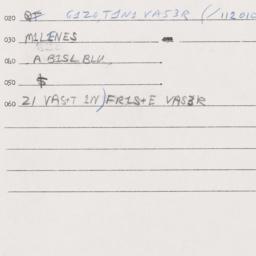 020 GIZO,TINI VAS3R (/112010
030 MILENES -
040 A BISL BLU,
050 $
060 ZI VAS+T IN) FRIS+E VAS3R